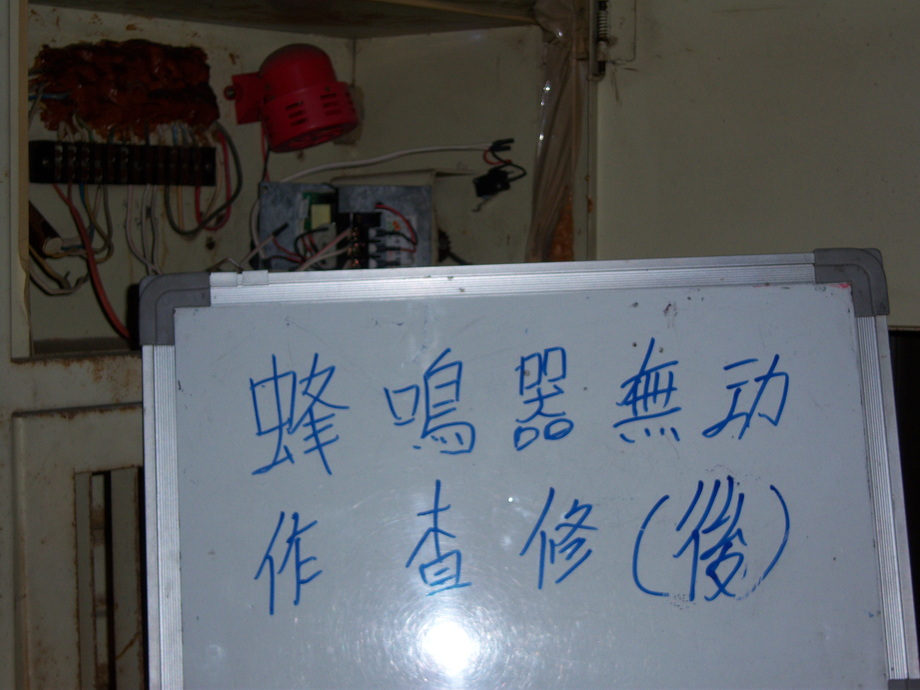 蜂鳴器無动
作查修(後)